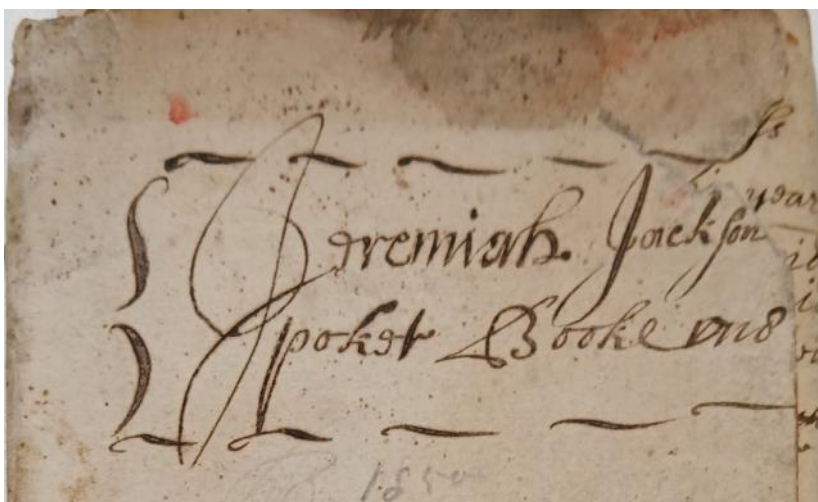 Jeremiah Jackson
poket Booke 1718
year